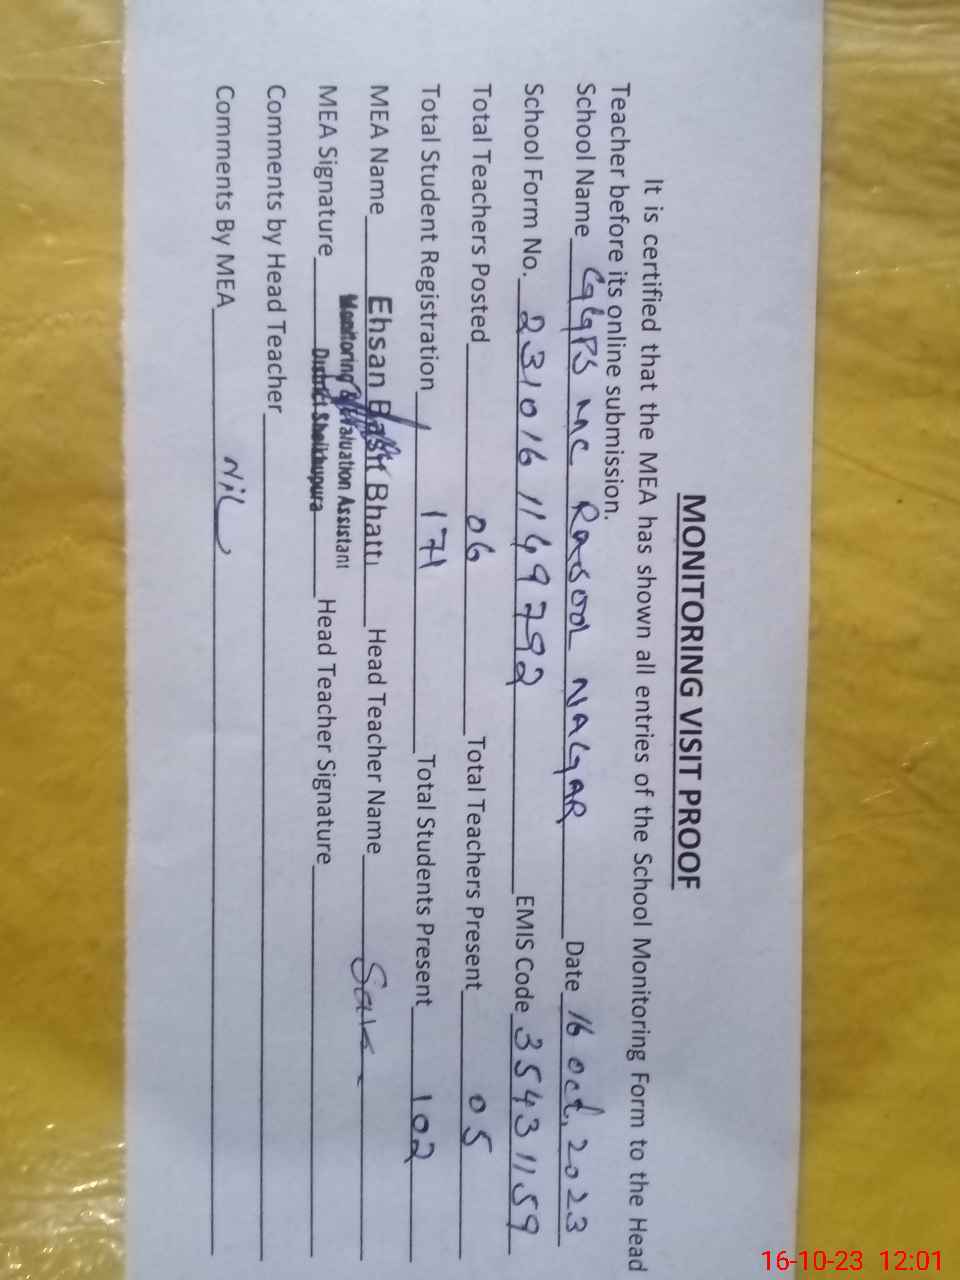 MONITORING VISIT PROOF
It is certified that the MEA has shown all entries of the School Monitoring Form to the Head
Teacher before its online submission.
School Name GGPS MC Rasool NAGAR Date 16 oct, 2023
School Form No. 231016 1149792 EMIS Code 35431159
Total Teachers Posted 06 Total Teachers Present 05
Total Student Registration 171 Total Students Present 102
MEA Name Ehsan Bhatti Head Teacher Name
Monitoring & Evaluation Assistant
MEA Signature District Sheikhupura Head Teacher Signature
Comments by Head Teacher
Comments By MEA NiL
16-10-23 12:01